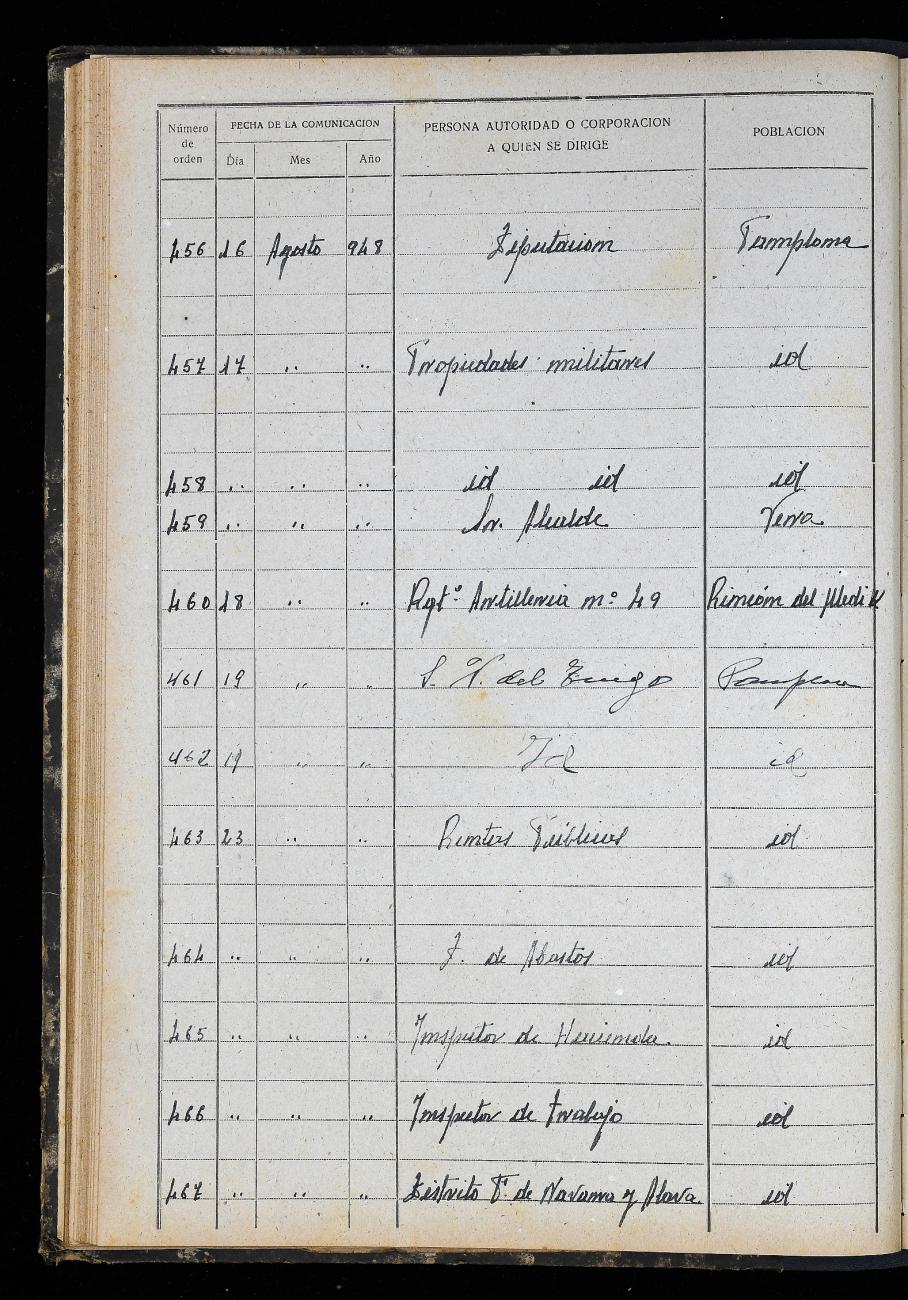 Número de orden FECHA DE LA COMUNICACION PERSONA AUTORIDAD O CORPORACION A QUIEN SE DIRIGE POBLACION
Día Mes Año
456 16 Agosto 948 Diputacion Pamplona
457 17 " " Propiedades militares id
458 " " " id id id
459 " " " Sr. Alcalde Vera
460 18 " " Rgtº Artilleria nº 49 Rincón del Medik
461 19 " " S. N. del Trigo Pamplona
462 19 " " Id id
463 23 " " Rentas Públicas id
464 " " " F. de Abastos id
465 " " " Inspector de Hacienda. id
466 " " " Inspector de trabajo id
467 " " " Distrito F. de Navarra y Alava. id